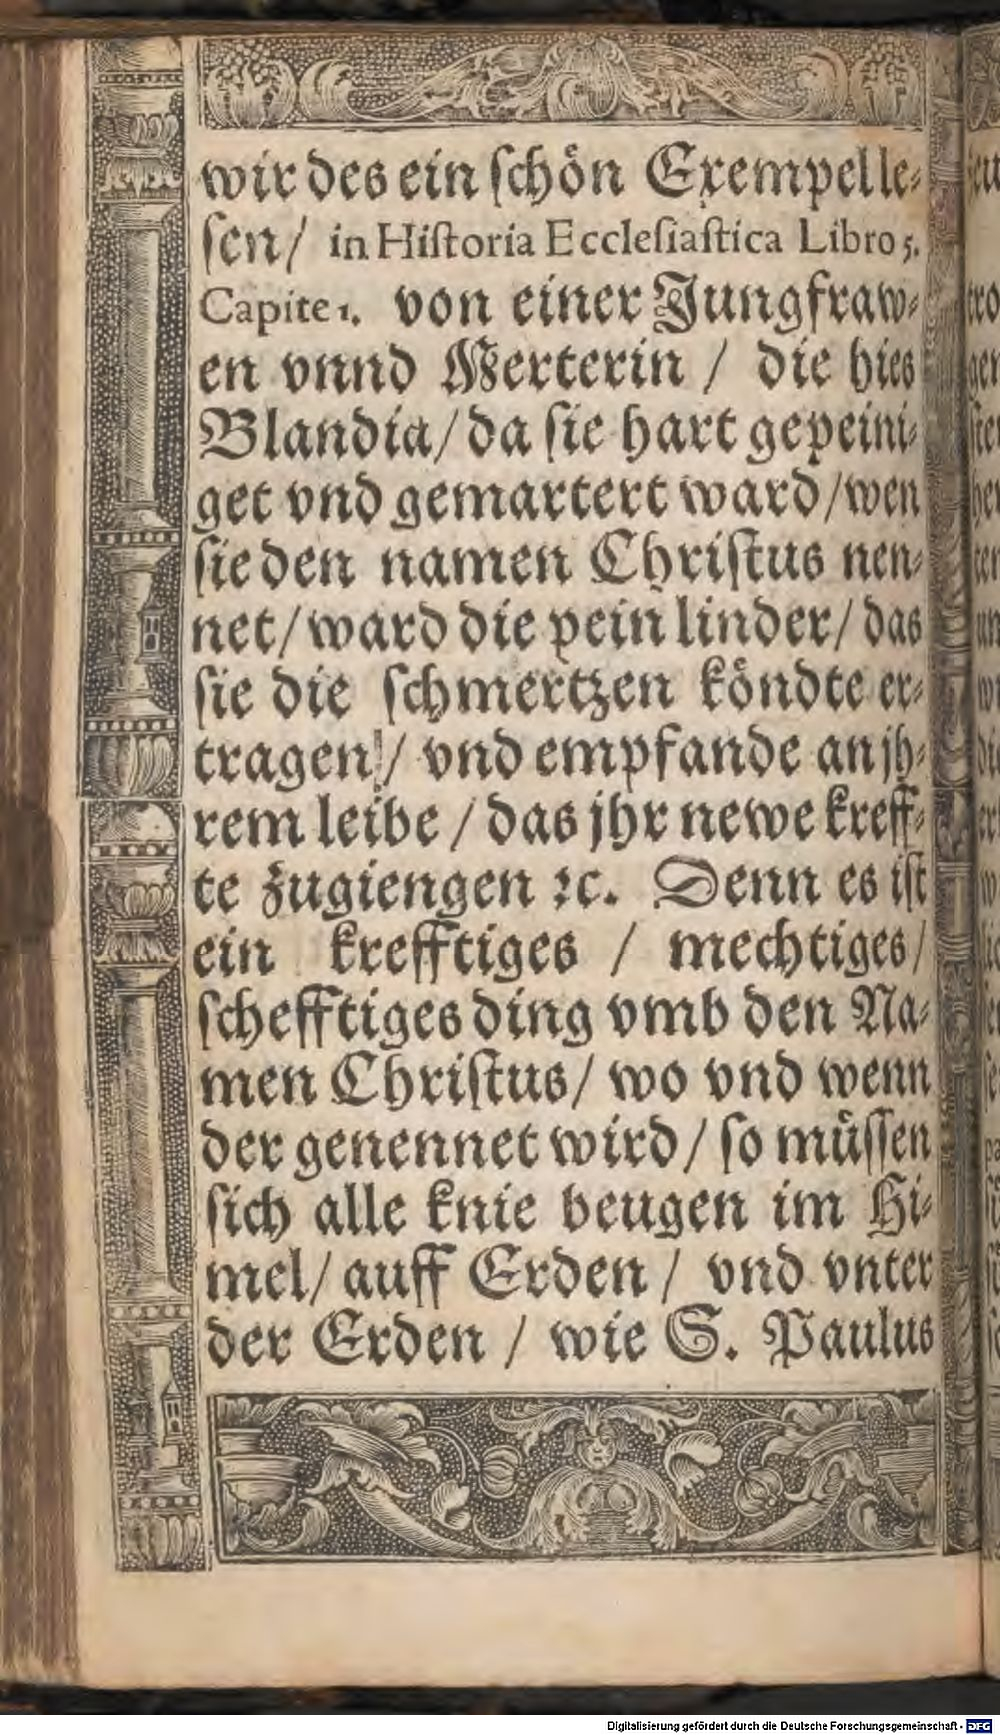 wir des ein ſchoͤn Exempel le⸗
ſen/ in Hiſtoria Eccleſiaſtica Libro 5.
Capite 1. von einer Jungfraw⸗
en vnnd Merterin / die hies
Blandia/ da ſie hart gepeini⸗
get vnd gemartert ward/wen
ſie den namen Chriſtus nen⸗
net/ward die pein linder/ das
ſie die ſchmertzen koͤndte er⸗
tragen!/ vnd empfande an jh⸗
rem leibe / das jhr newe kreff⸗
te zugiengen ꝛc. Denn es iſt
ein krefftiges / mechtiges/
ſchefftiges ding vmb den Na⸗
men Chriſtus/ wo vnd wenn
der genennet wird/ ſo muͤſſen
ſich alle knie beugen im Hi⸗
mel/ auff Erden / vnd vnter
der Erden / wie S. Paulus
Digitalisierung gefördert durch die Deutsche Forschungsgemeinschaft - DFG